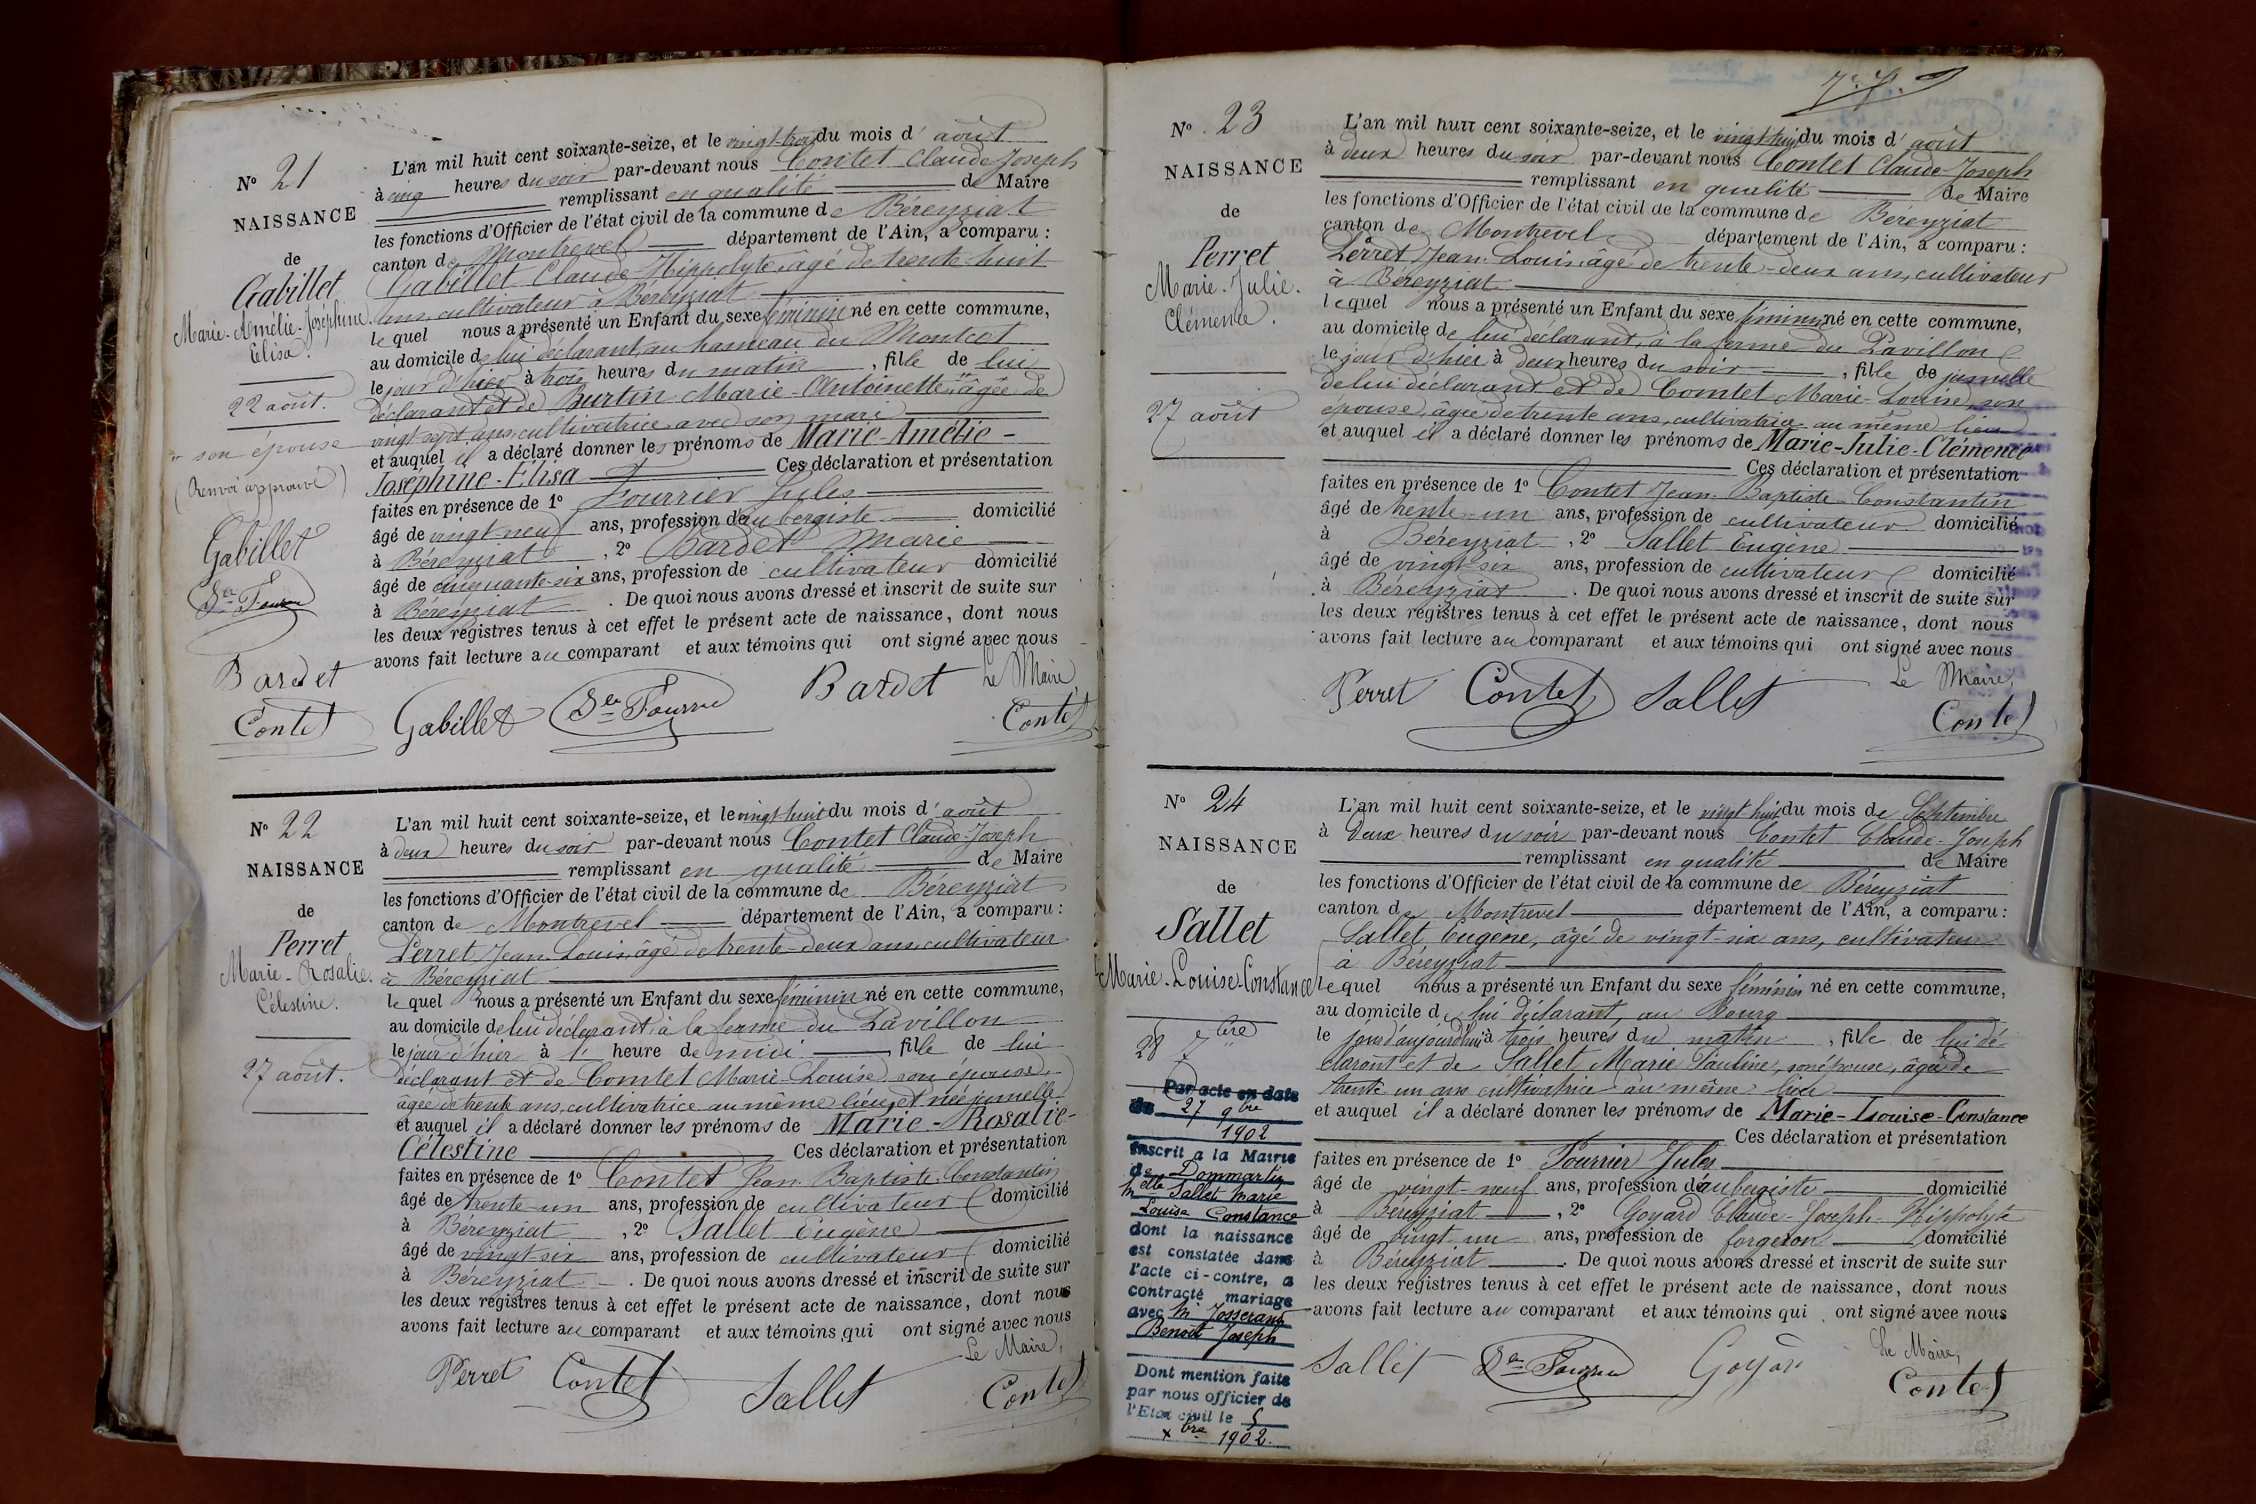 N° 21
NAISSANCE
de
Gabillet
Marie-Amélie-Joséphine
Elisa.
22 août.
" son épouse
(Renvoi approuvé)
Gabillet
Bardet
Contet
L'an mil huit cent soixante-seize, et le vingt-trois du mois d'août
à cinq heures du soir par-devant nous Contet Claude Joseph
remplissant en qualité de Maire
les fonctions d'Officier de l'état civil de la commune de Béreyziat
canton de Montrevel département de l'Ain, a comparu :
Gabillet Claude-Hippolyte, âgé de trente-huit
ans, cultivateur à Béreyziat
lequel nous a présenté un Enfant du sexe féminin né en cette commune,
au domicile de lui déclarant, au hameau du Montcet
le jour d'hier à trois heures du matin, fille de lui
déclarant et de Burtin Marie-Antoinette, " âgée de
vingt sept ans, cultivatrice avec son mari
et auquel il a déclaré donner les prénoms de Marie-Amélie-
Joséphine-Elisa Ces déclaration et présentation
faites en présence de 1° Fourrier Jules
âgé de vingt neuf ans, profession d'aubergiste domicilié
à Béreyziat, 2° Bardet Marie
âgé de cinquante-six ans, profession de cultivateur domicilié
à Béreyziat. De quoi nous avons dressé et inscrit de suite sur
les deux registres tenus à cet effet le présent acte de naissance, dont nous
avons fait lecture au comparant et aux témoins qui ont signé avec nous
Le Maire,
Gabillet Bardet Contet
N° 22
NAISSANCE
de
Perret
Marie-Rosalie.
Célestine.
27 août.
L'an mil huit cent soixante-seize, et le vingt huit du mois d'août
à deux heures du soir par-devant nous Contet Claude-Joseph
remplissant en qualité de Maire
les fonctions d'Officier de l'état civil de la commune de Béreyziat
canton de Montrevel département de l'Ain, a comparu :
Perret Jean Louis, âgé de trente-deux ans, cultivateur
à Béreyziat
lequel nous a présenté un Enfant du sexe féminin né en cette commune,
au domicile de lui déclarant, à la ferme du Pavillon
le jour d'hier à 1 heure de midi, fille de lui
déclarant et de Comtet Marie Louise son épouse,
âgée de trente ans, cultivatrice au même lieu, et née jumelle
et auquel il a déclaré donner les prénoms de Marie-Rosalie-
Célestine Ces déclaration et présentation
faites en présence de 1° Contet Jean Baptiste Constantin
âgé de trente-un ans, profession de cultivateur domicilié
à Béreyziat, 2° Sallet Eugène
âgé de vingt six ans, profession de cultivateur domicilié
à Béreyziat. De quoi nous avons dressé et inscrit de suite sur
les deux registres tenus à cet effet le présent acte de naissance, dont nous
avons fait lecture au comparant et aux témoins qui ont signé avec nous
Le Maire,
Perret Contet Sallet Contet
N° 23
NAISSANCE
de
Perret
Marie-Julie.
Clémence.
27 août
L'an mil huit cent soixante-seize, et le vingt huit du mois d'août
à deux heures du soir par-devant nous Contet Claude-Joseph
remplissant en qualité de Maire
les fonctions d'Officier de l'état civil de la commune de Béreyziat
canton de Montrevel département de l'Ain, a comparu :
Perret Jean Louis, âgé de trente-deux ans, cultivateur
à Béreyziat
lequel nous a présenté un Enfant du sexe féminin né en cette commune,
au domicile de lui déclarant, à la ferme du Pavillon
le jour d'hier à deux heures du soir, fille de jumelle
de lui déclarant et de Comtet Marie-Louise, son
épouse, âgée de trente ans, cultivatrice au même lieu
et auquel il a déclaré donner les prénoms de Marie-Julie-Clémence
Ces déclaration et présentation
faites en présence de 1° Contet Jean-Baptiste Constantin
âgé de trente-un ans, profession de cultivateur domicilié
à Béreyziat, 2° Sallet Eugène
âgé de vingt six ans, profession de cultivateur domicilié
à Béreyziat. De quoi nous avons dressé et inscrit de suite sur
les deux registres tenus à cet effet le présent acte de naissance, dont nous
avons fait lecture au comparant et aux témoins qui ont signé avec nous
Le Maire,
Perret Contet Sallet Contet
N° 24
NAISSANCE
de
Sallet
Marie-Louise-Constance
28 7bre
Par acte en date
du 27 9bre
1902
inscrit a la Mairie
de Dommartin
Melle Sallet Marie
Louise Constance
dont la naissance
est constatée dans
l'acte ci-contre, a
contracté mariage
avec M Josserand
Benoît Joseph
Dont mention faite
par nous officier de
l'Etat civil le 5
xbre 1902.
L'an mil huit cent soixante-seize, et le vingt huit du mois de Septembre
à Deux heures du soir par-devant nous Contet Claude-Joseph
remplissant en qualité de Maire
les fonctions d'Officier de l'état civil de la commune de Béreyziat
canton de Montrevel département de l'Ain, a comparu :
Sallet Eugène, âgé de vingt-six ans, cultivateur
à Béreyziat
lequel nous a présenté un Enfant du sexe féminin né en cette commune,
au domicile de lui déclarant, au Bourg
le jour d'aujourd'hui à trois heures du matin, fille de lui dé-
clarant et de Sallet Marie Pauline, son épouse, âgée de
trente un ans cultivatrice au même lieu
et auquel il a déclaré donner les prénoms de Marie-Louise-Constance
Ces déclaration et présentation
faites en présence de 1° Fourrier Jules
âgé de vingt-neuf ans, profession d'aubergiste domicilié
à Béreyziat, 2° Goyard Claude-Joseph-Hippolyte
âgé de vingt-un ans, profession de forgeron domicilié
à Béreyziat. De quoi nous avons dressé et inscrit de suite sur
les deux registres tenus à cet effet le présent acte de naissance, dont nous
avons fait lecture au comparant et aux témoins qui ont signé avec nous
Le Maire,
Sallet Goyard Contet